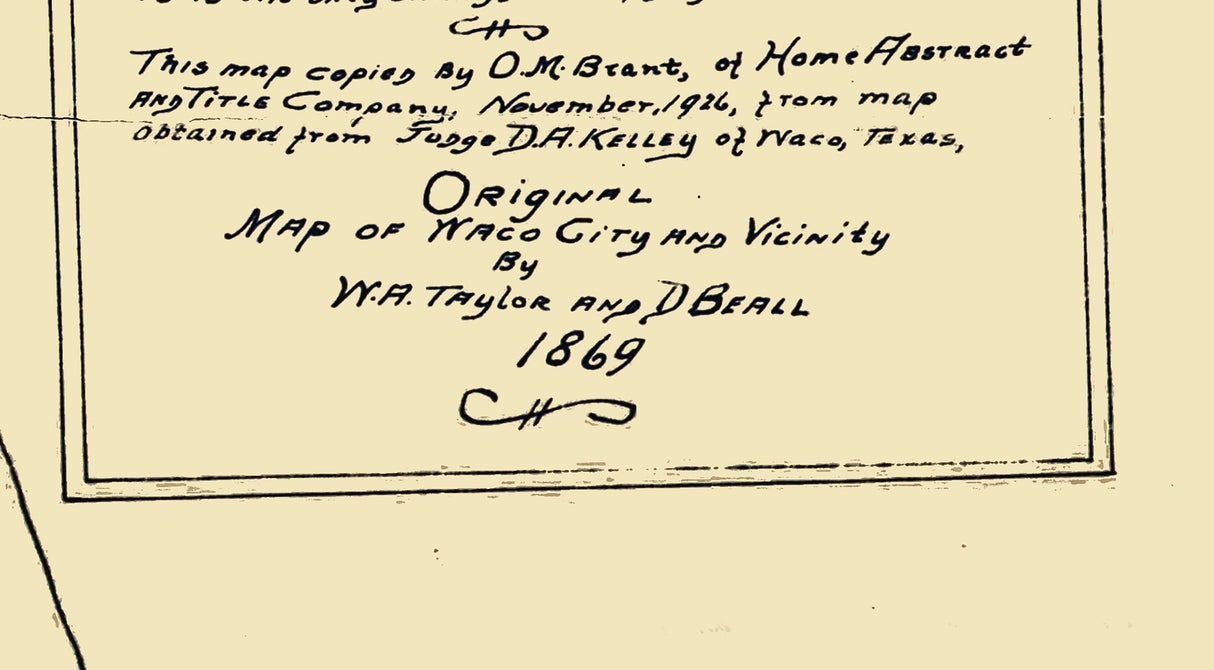 This map copied By O.M. Brant, of Home Abstract
and Title Company, November, 1926, from map
obtained from Judge D.A. Kelley of Waco, Texas,
Original
Map of Waco City and Vicinity
By
W.A. Taylor and D Beall
1869